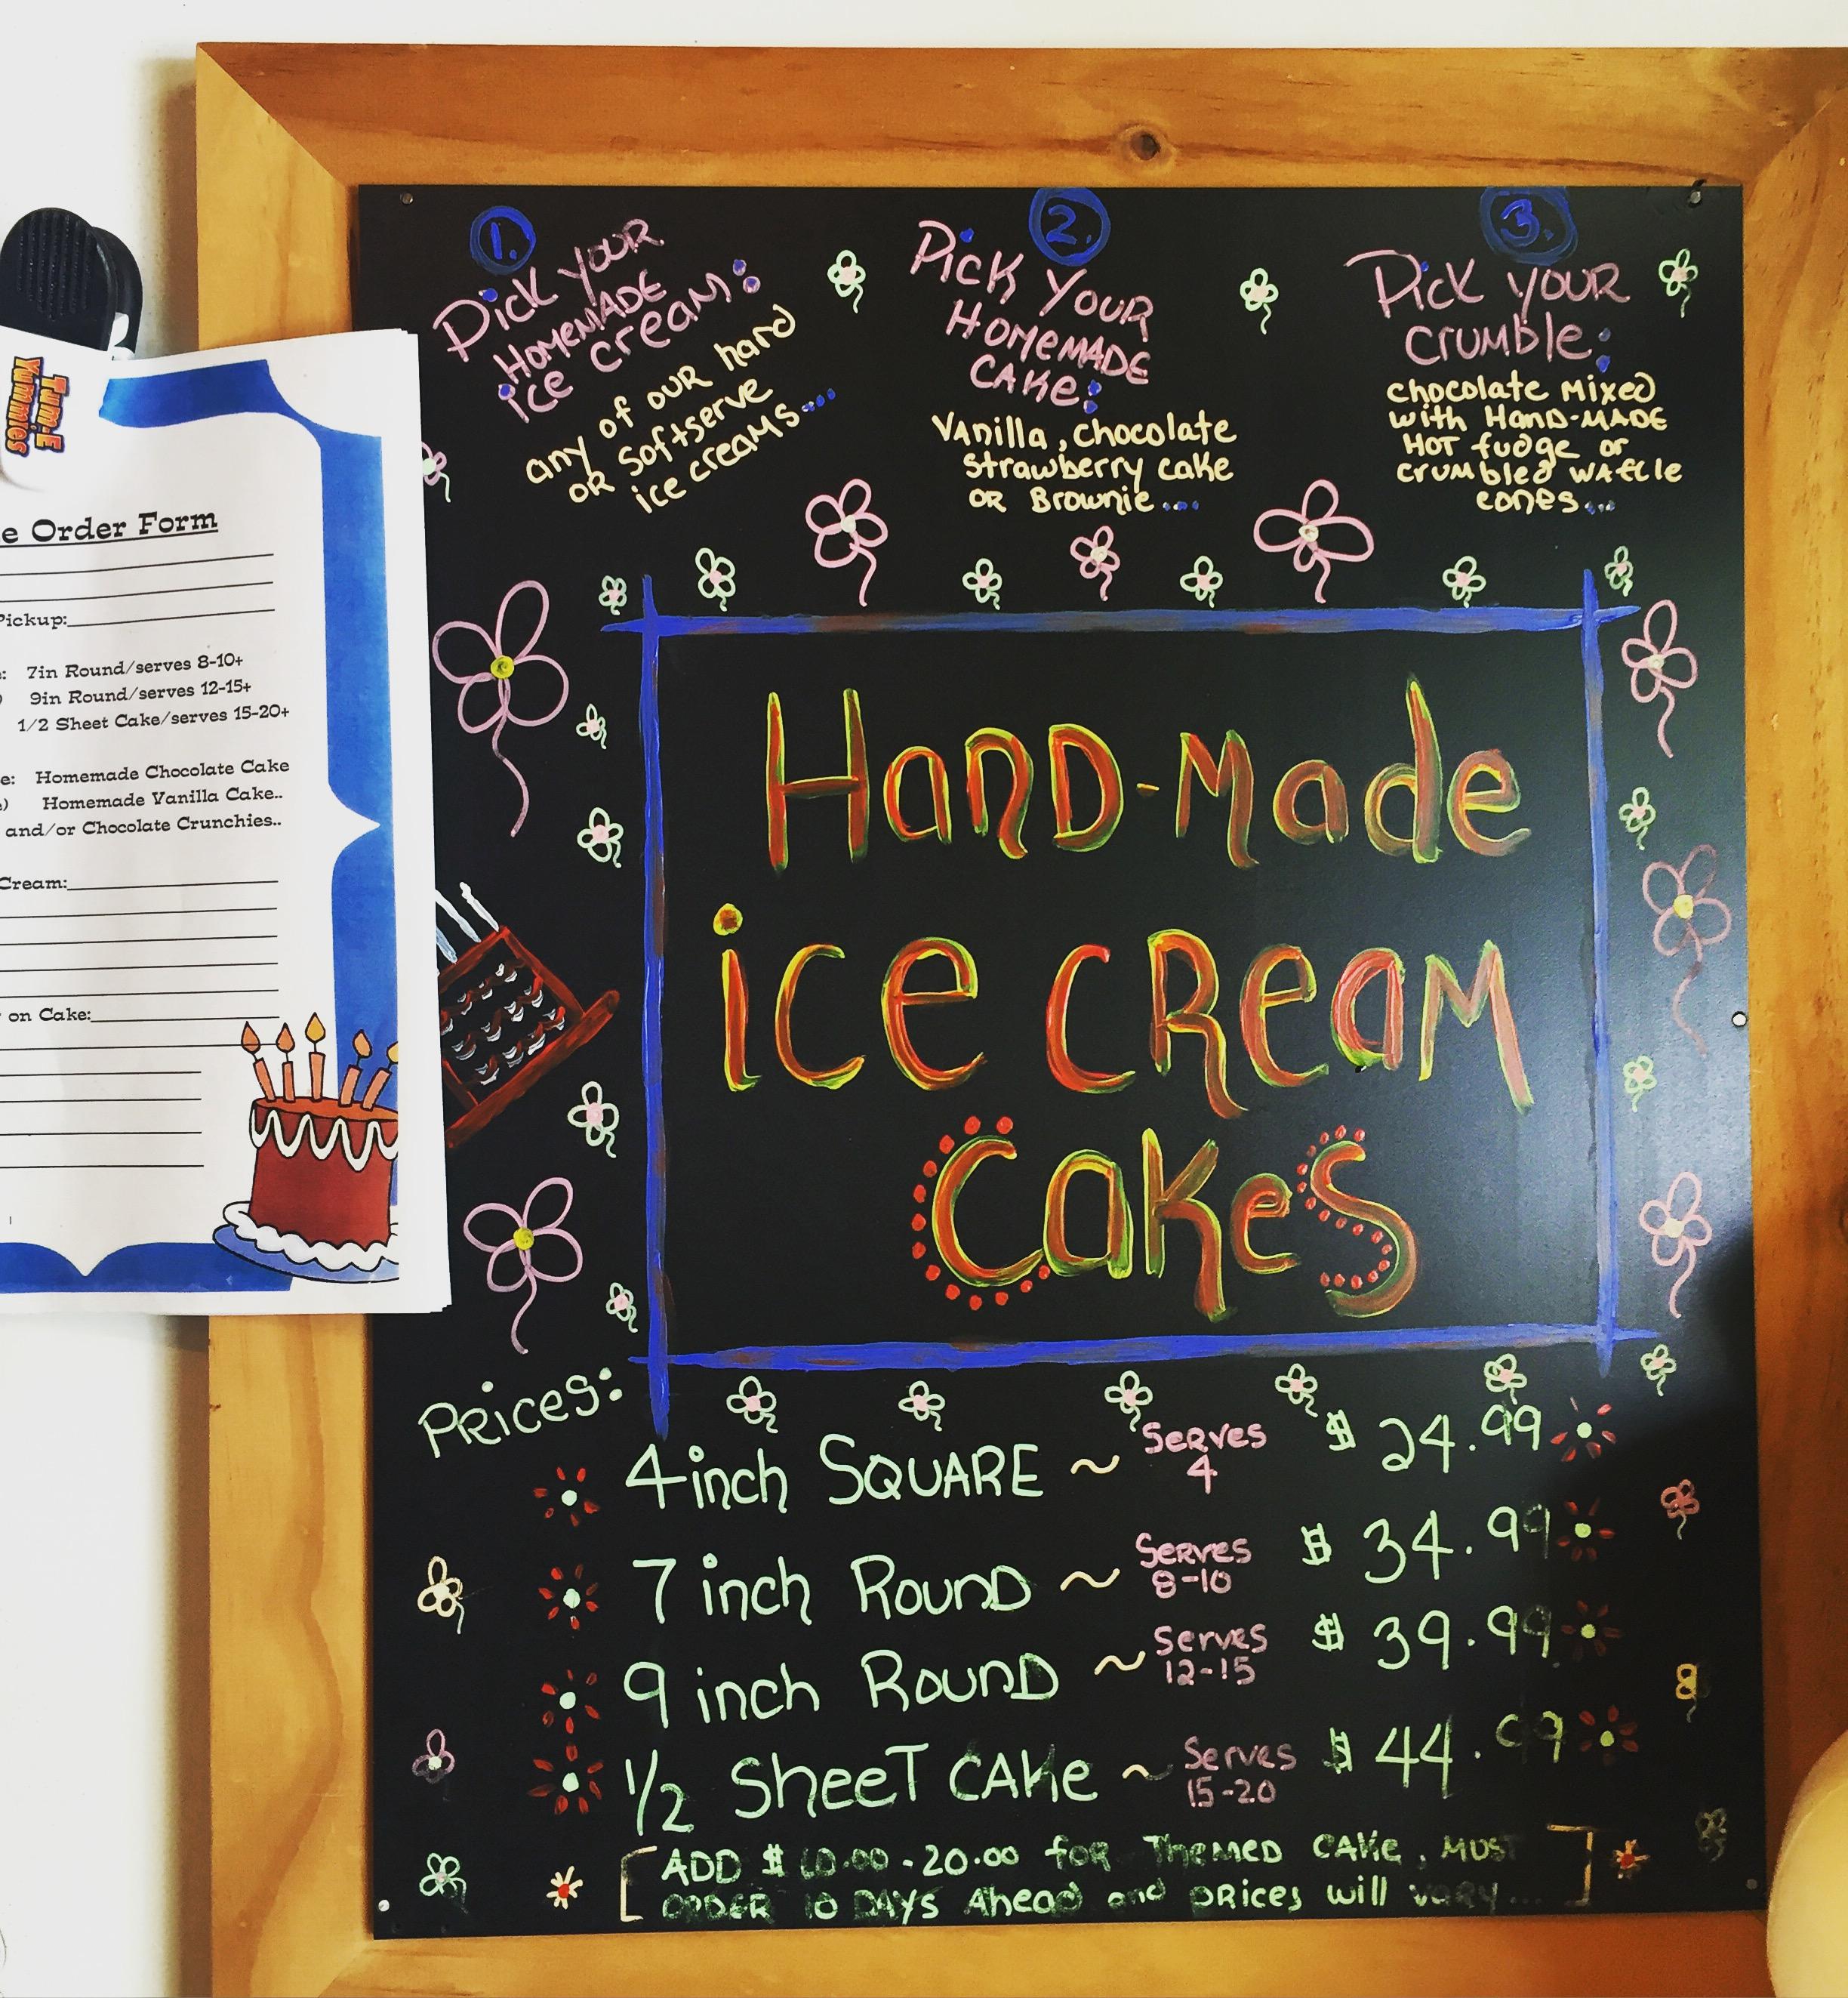 Tum-E
Yummies
e Order Form
Pickup:
7in Round/serves 8-10+
9in Round/serves 12-15+
1/2 Sheet Cake/serves 15-20+
e: Homemade Chocolate Cake
Homemade Vanilla Cake..
and/or Chocolate Crunchies..
Cream:
on Cake:
1.
Pick your
HOMEMADE
ice cream:
any of our hard
OR softserve
ice creams....
2.
Pick Your
HOMEMADE
CAKe:
Vanilla, chocolate
strawberry cake
OR Brownie....
3.
Pick your
crumble:
chocolate Mixed
with HanD-MADE
HOT fudge or
crumbled waffle
cones...
HanD-Made
ice cReaM
CakeS
PRices:
4inch SQUARE ~ SeRves 4 $ 24.99
7 inch RounD ~ SeRves 8-10 $ 34.99
9 inch RounD ~ Serves 12-15 $ 39.99
1/2 SheeT CAKe ~ Serves 15-20 $ 44.99
[ADD $ 10.00-20.00 foR THeMeD CAKe, MUST
ORDER 10 DAYS AheaD and pRices will vary...]